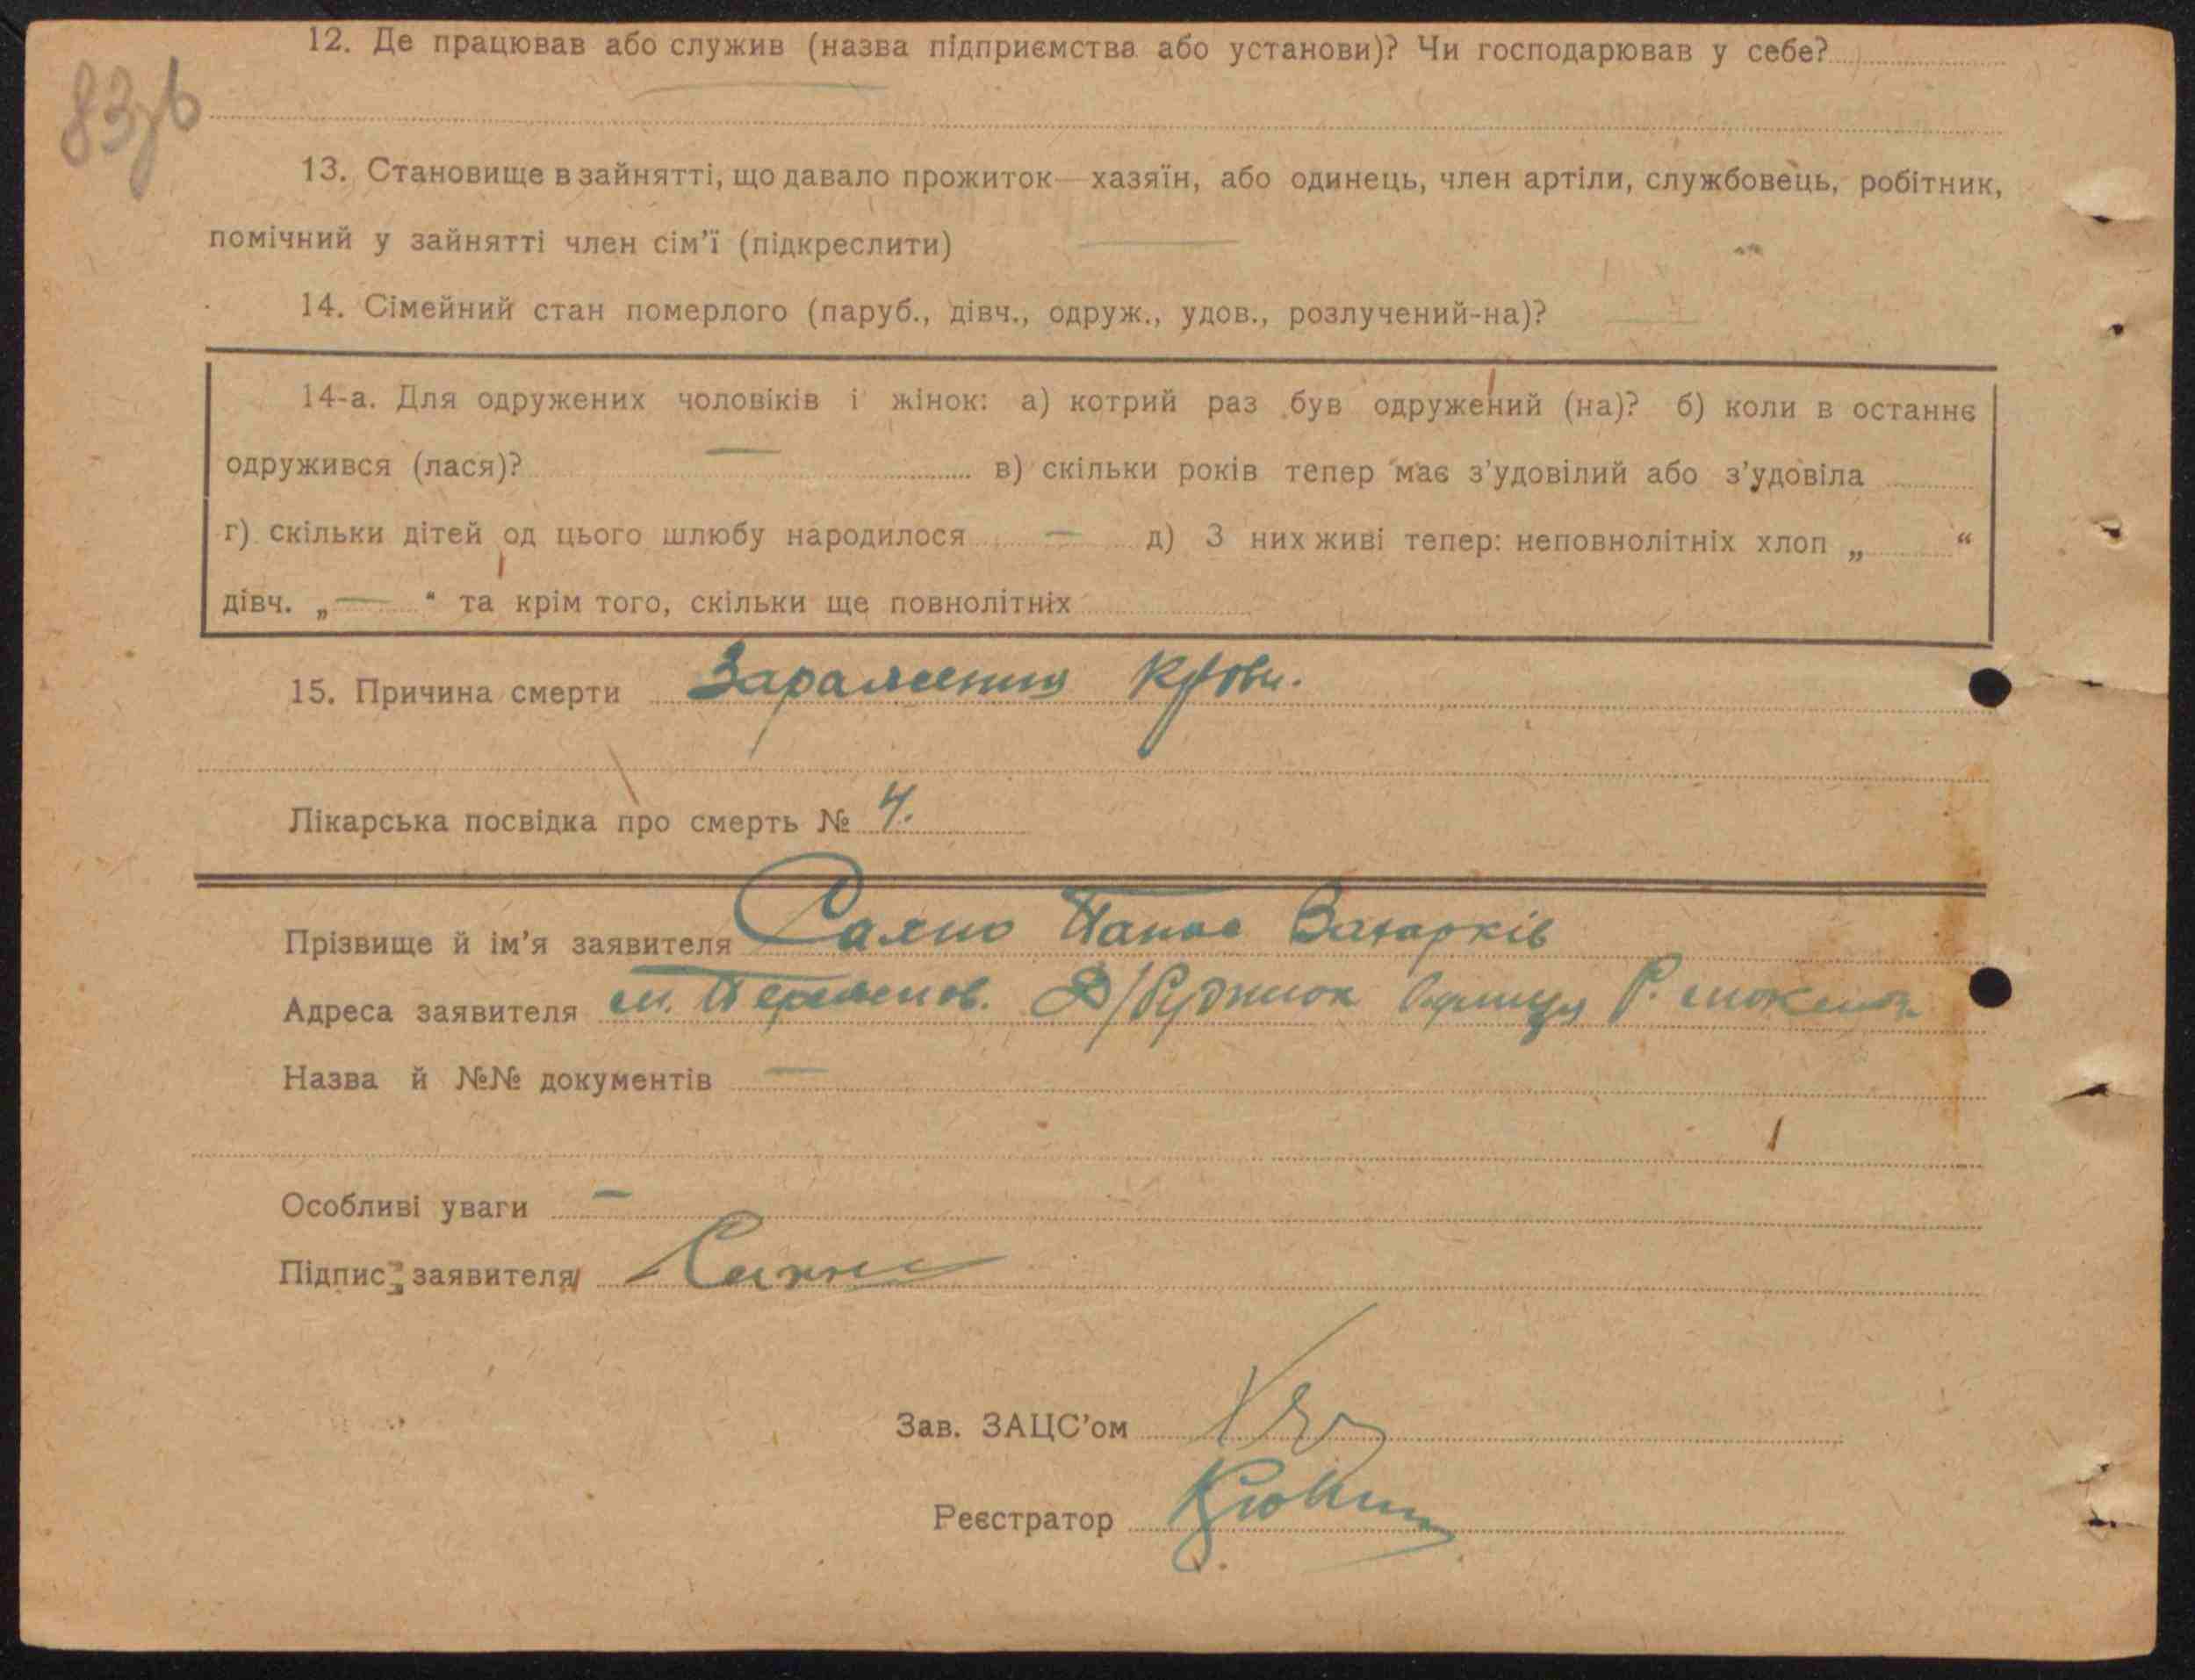 83зв
12. Де працював або служив (назва підприємства або установи)? Чи господарював у себе?
13. Становище в зайнятті, що давало прожиток—хазяїн, або одинець, член артіли, службовець, робітник,
помічний у зайнятті член сім'ї (підкреслити)
14. Сімейний стан померлого (паруб., дівч., одруж., удов., розлучений-на)?
14-а. Для одружених чоловіків і жінок: а) котрий раз був одружений (на)? б) коли в останнє
одружився (лася)? — в) скільки років тепер має з'удовілий або з'удовіла
г) скільки дітей од цього шлюбу народилося — д) З них живі тепер: неповнолітніх хлоп „ “
дівч. „—“ та крім того, скільки ще повнолітніх
15. Причина смерти Зараження крови.
Лікарська посвідка про смерть № 4.
Прізвище й ім'я заявителя Панас
Адреса заявителя м.
Назва й №№ документів —
Особливі уваги —
Підпис заявителя
Зав. ЗАЦС'ом
Реєстратор